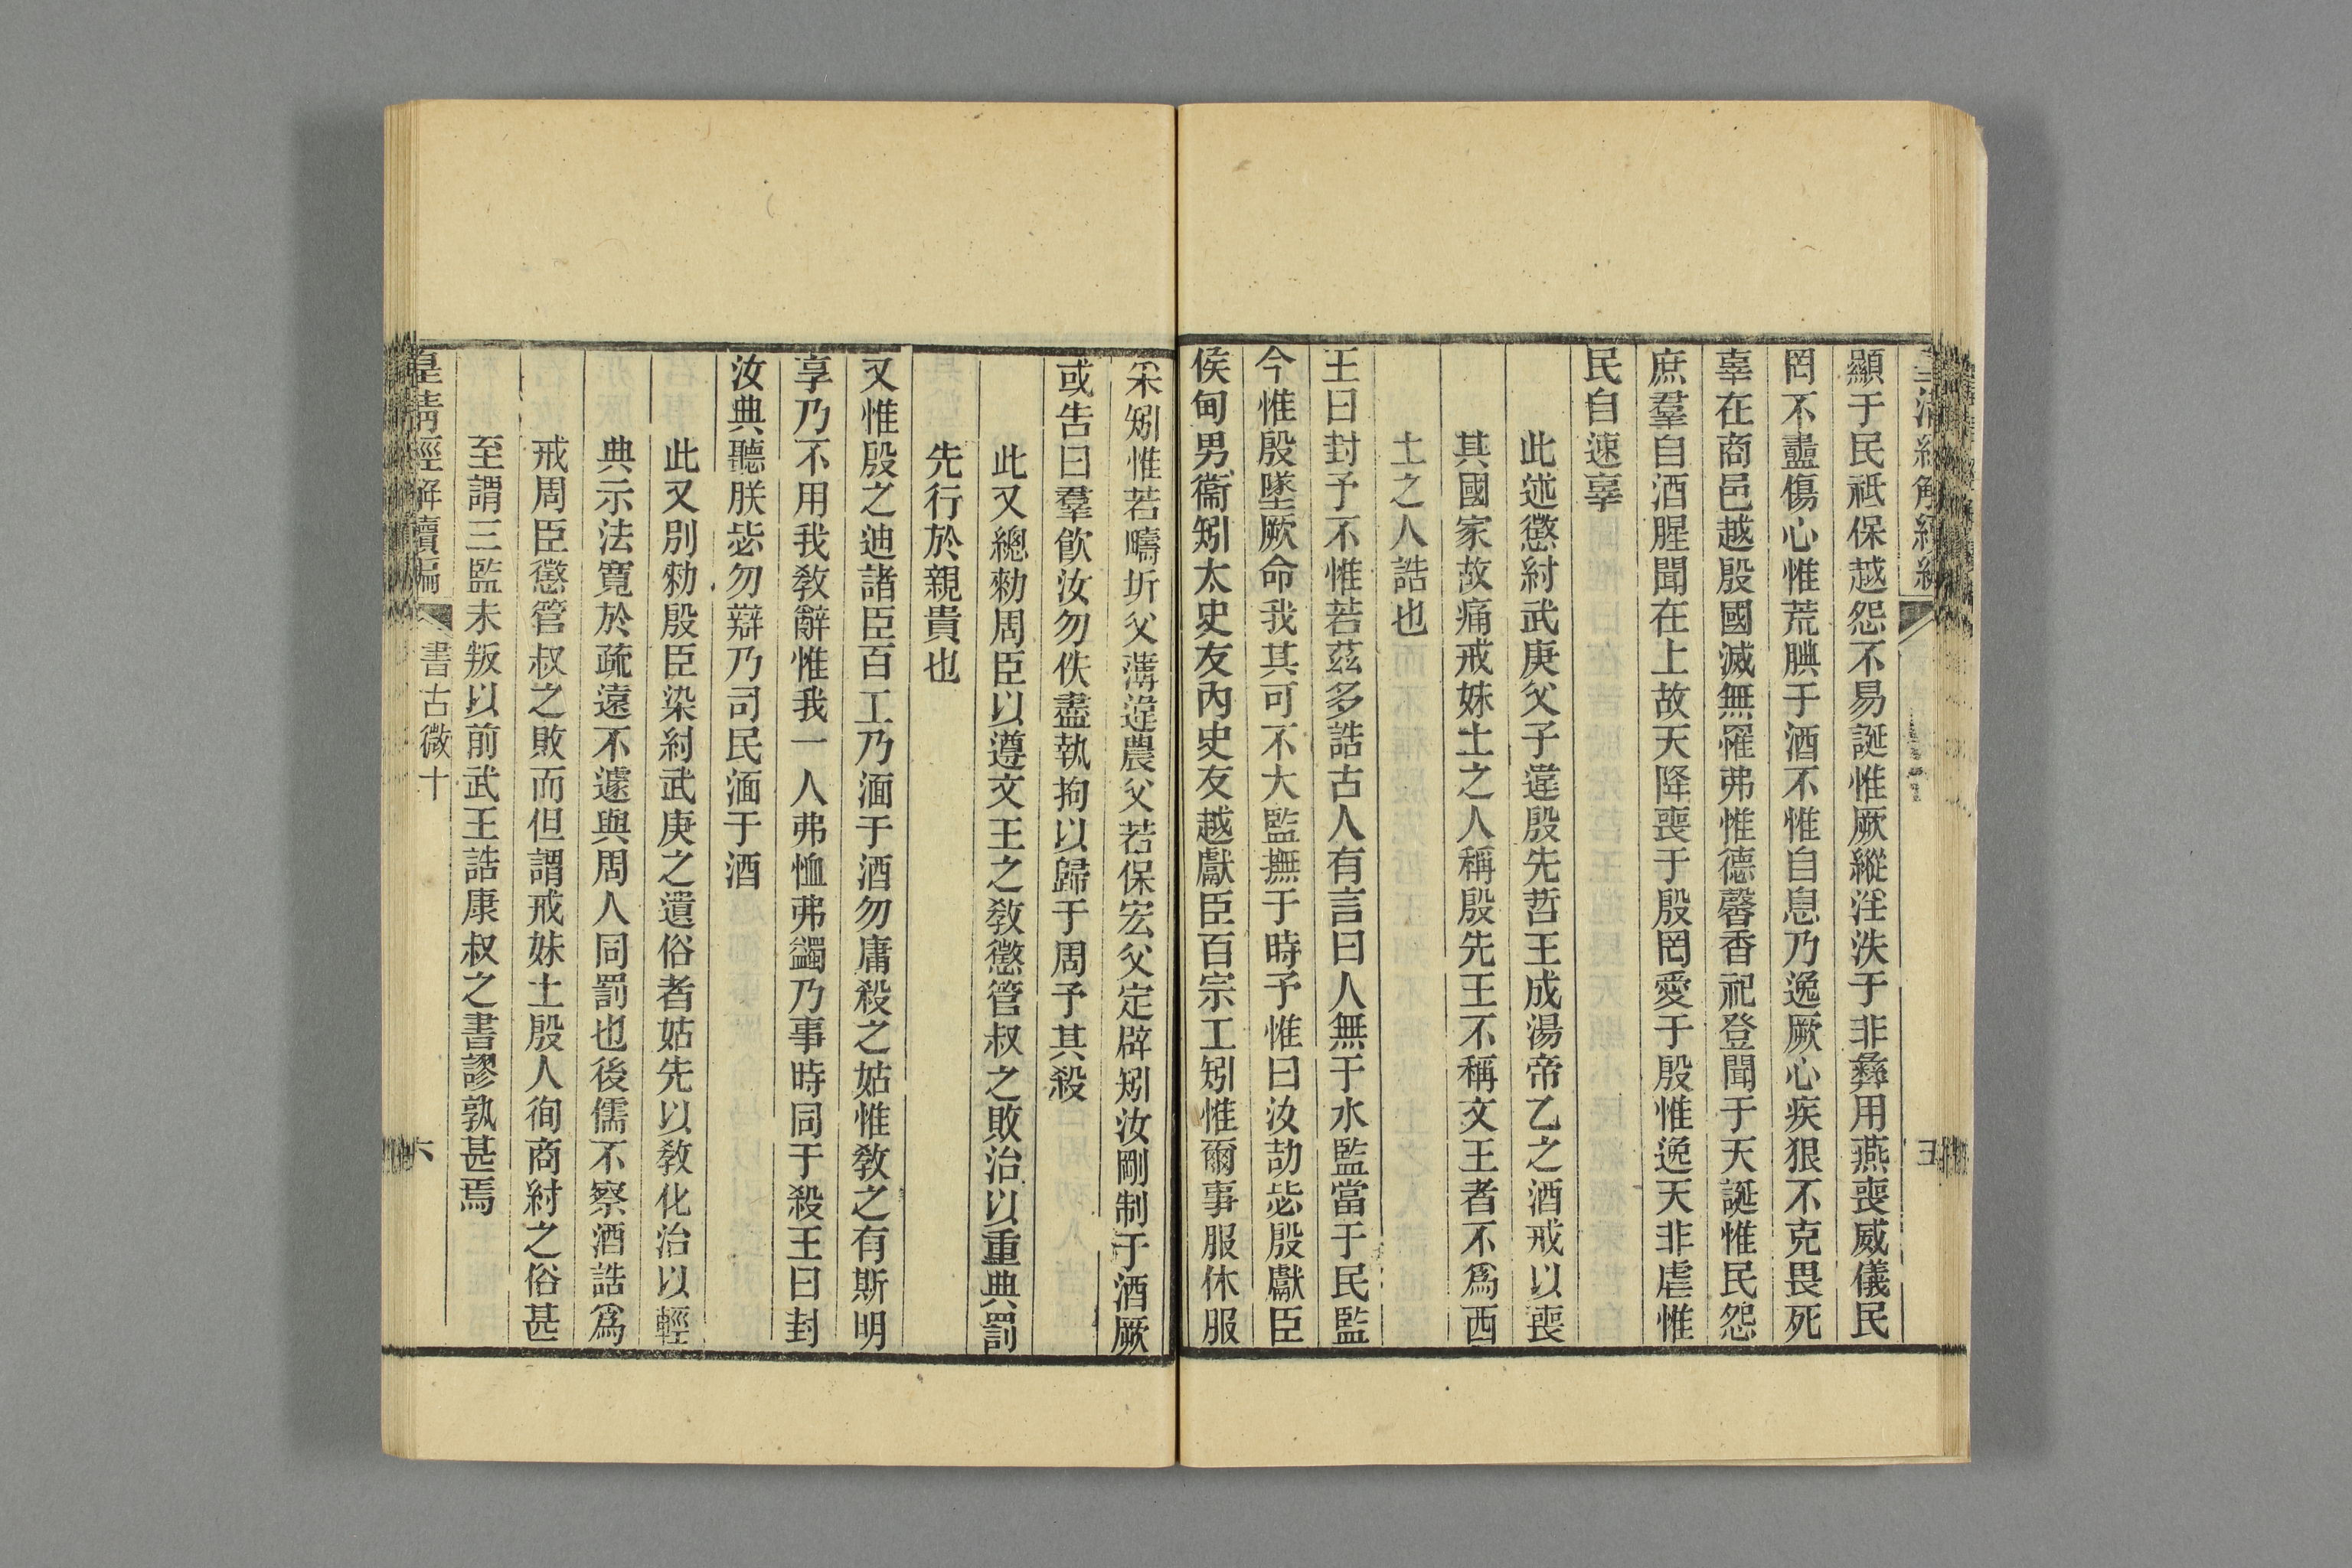 顯于民祗保越怨不易誕惟厥縱淫泆于非彝用燕喪威儀民
罔不衋傷心惟荒腆于酒不惟自息乃逸厥心疾狠不克畏死
辜在商邑越殷國滅無罹弗惟德馨香祀登聞于天誕惟民怨
庶羣自酒腥聞在上故天降喪于殷罔愛于殷惟逸天非虐惟
民自速辜
此述懲紂武庚父子違殷先哲王成湯帝乙之酒戒以喪
其國家故痛戒妹土之人稱殷先王不稱文王者不爲西
土之人誥也
王曰封予不惟若茲多誥古人有言曰人無于水監當于民監
今惟殷墜厥命我其可不大監撫于時予惟曰汝劼毖殷獻臣
侯甸男衞矧太史友內史友越獻臣百宗工矧惟爾事服休服
采矧惟若疇圻父薄違農父若保宏父定辟矧汝剛制于酒厥
或告曰羣飮汝勿佚盡執拘以歸于周予其殺
此又總勑周臣以遵文王之敎懲管叔之敗治以重典罰
先行於親貴也
又惟殷之迪諸臣百工乃湎于酒勿庸殺之姑惟敎之有斯明
享乃不用我敎辭惟我一人弗恤弗蠲乃事時同于殺王曰封
汝典聽朕毖勿辯乃司民湎于酒
此又別勑殷臣染紂武庚之遺俗者姑先以敎化治以輕
典示法寬於疏遠不遽與周人同罰也後儒不察酒誥爲
戒周臣懲管叔之敗而但謂戒妹土殷人徇商紂之俗甚
至謂三監未叛以前武王誥康叔之書謬孰甚焉
皇淸經解續編
書古微十
六